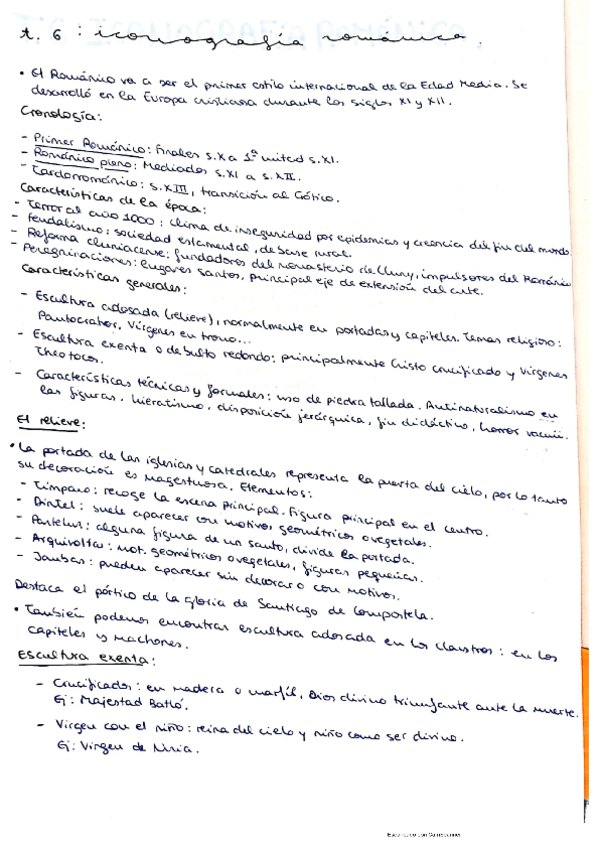 t. 6 : iconografía románica.
• El Románico va a ser el primer estilo internacional de la Edad Media. Se
desarrolló en la Europa cristiana durante los siglos XI y XII.
Cronología:
- Primer Románico: Finales s.X a 1ª mitad s.XI.
- Románico pleno: Mediados s.XI a s.XII.
- Tardorrománico: s.XIII, transición al Gótico.
Características de la época:
- Terror al año 1000: clima de inseguridad por epidemias y creencia del fin del mundo.
- Feudalismo: sociedad estamental, de base rural.
- Reforma cluniacense: fundadores del monasterio de Cluny, impulsores del Románico
- Peregrinaciones: lugares santos, principal eje de extensión del arte.
Características generales:
- Escultura adosada (relieve), normalmente en portadas y capiteles. Temas religioso:
Pantocrator, Vírgenes en trono...
- Escultura exenta o de bulto redondo: principalmente Cristo crucificado y Vírgenes
theotocos.
- Características técnicas y formales: uso de piedra tallada. Antinaturalismo en
las figuras, hieratismo, disposición jerárquica, fin didáctico, horror vacuii.
El relieve:
• La portada de las iglesias y catedrales representa la puerta del cielo, por lo tanto
su decoración es magestuosa. Elementos:
- Tímpano: recoge la escena principal. Figura principal en el centro.
- Dintel: suele aparecer con motivos geométricos o vegetales.
- Parteluz: alguna figura de un santo, divide la portada.
- Arquivolta: mot. geométricos o vegetales, figuras pequeñas.
- Jambas: pueden aparecer sin decorar o con motivos.
Destaca el pórtico de la gloria de Santiago de Compostela.
• También podemos encontrar escultura adosada en los claustros: en los
capiteles y machones.
Escultura exenta:
- Crucificados: en madera o marfil, Dios divino triunfante ante la muerte.
Ej: Majestad Batló.
- Virgen con el niño: reina del cielo y niño como ser divino.
Ej: Virgen de
Escaneado con CamScanner